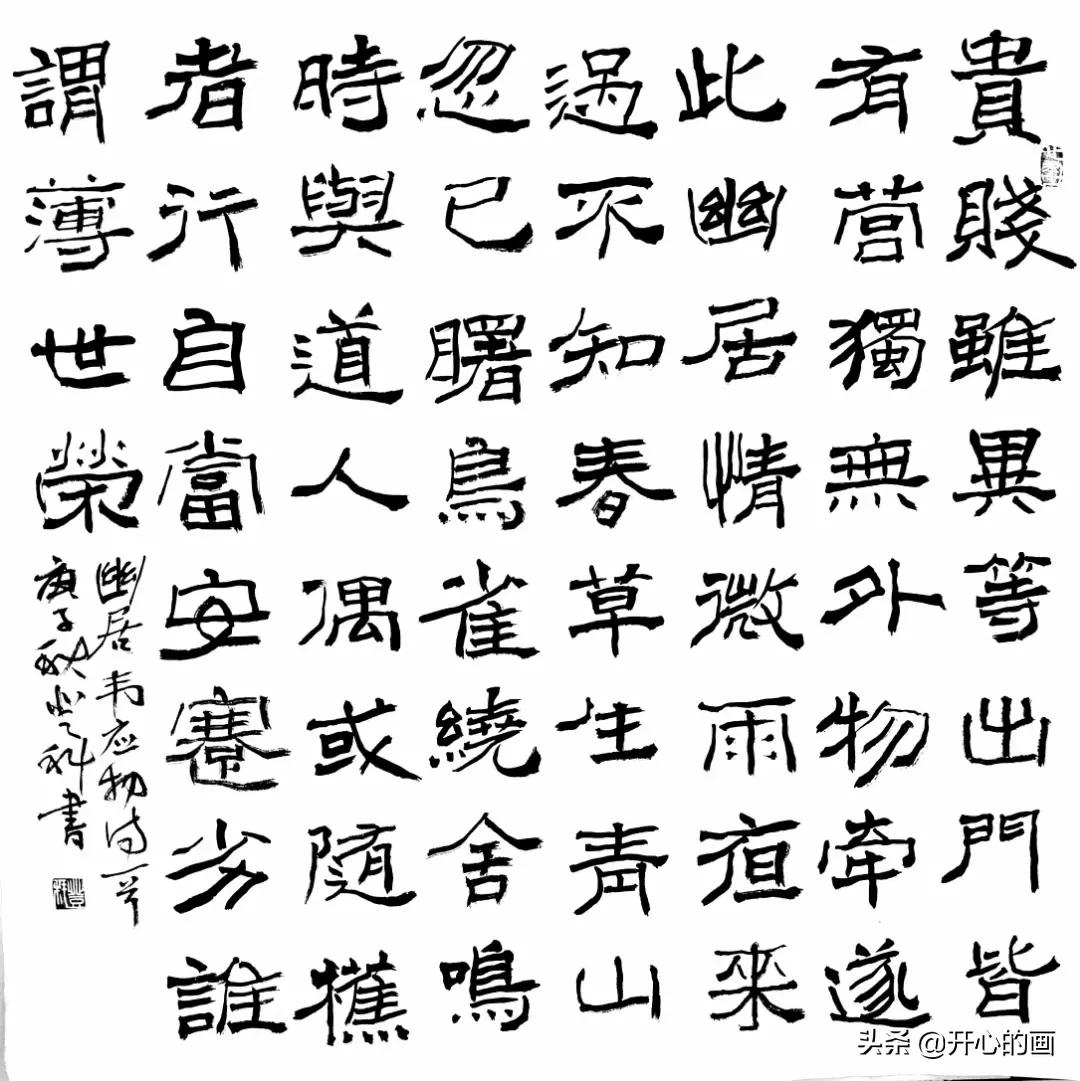 貴賤雖異等出門皆
有營獨無外物牽遂
此幽居情微雨夜來
過不知春草生青山
忽已曙鳥雀繞舍鳴
時與道人偶或隨樵
者行自當安蹇劣誰
謂薄世榮
幽居韦应物诗一首
庚子秋科書
头条 @开心的画